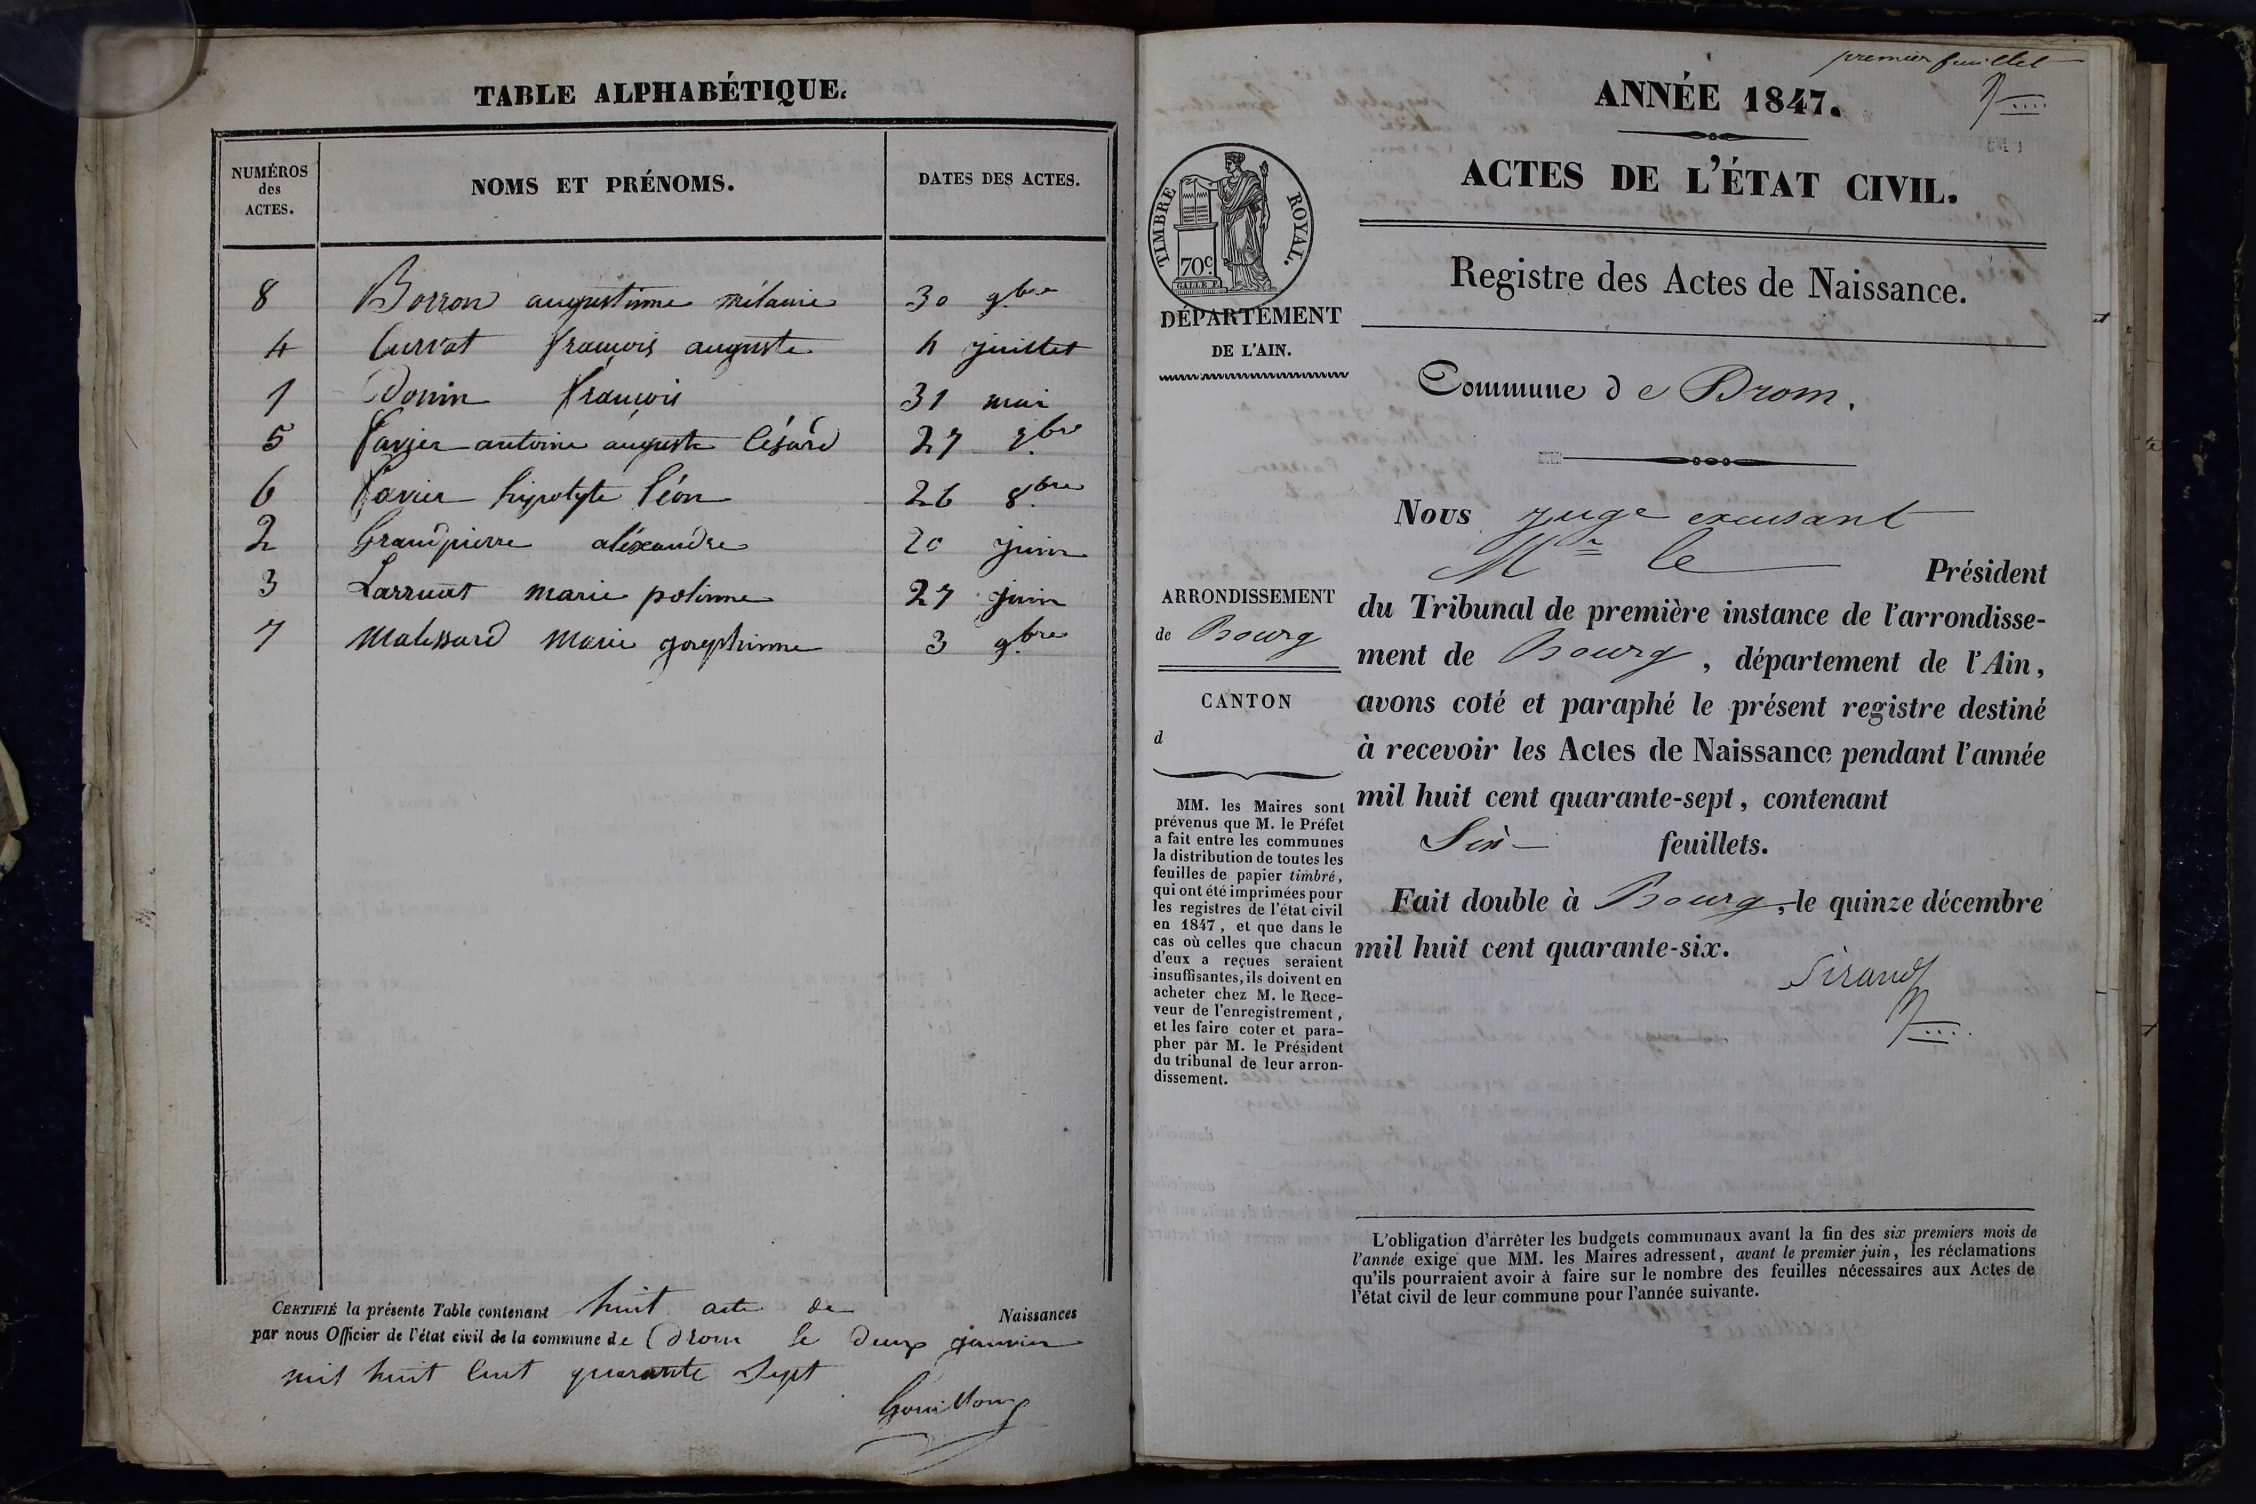 TABLE ALPHABÉTIQUE.
NUMÉROS
des
ACTES.
NOMS ET PRÉNOMS.
DATES DES ACTES.
8 Borron augustinne mélanie 30 9bre
4 Curvat françois auguste 4 juillet
1 Donin françois 31 mai
5 Favier antoine auguste Césard 27 7bre
6 Favier hipolyte léon 26 8bre
2 Grandpierre aléxandre 20 juin
3 Larruat marie polinne 27 juin
7 Malessard Marie josephinne 3 9bre
CERTIFIÉ la présente Table contenant huit acte de Naissances
par nous Officier de l'état civil de la commune de Drom le Deux janvier
mil huit Cent quarante Sept
Gouilloux
premier feuillet
ANNÉE 1847.
ACTES DE L'ÉTAT CIVIL.
TIMBRE ROYAL.
70c
DÉPARTEMENT
DE L'AIN.
Registre des Actes de Naissance.
Commune de Drom.
ARRONDISSEMENT
de Bourg
CANTON
d
MM. les Maires sont
prévenus que M. le Préfet
a fait entre les communes
la distribution de toutes les
feuilles de papier timbré,
qui ont été imprimées pour
les registres de l'état civil
en 1847, et que dans le
cas où celles que chacun
d'eux a reçues seraient
insuffisantes, ils doivent en
acheter chez M. le Rece-
veur de l'enregistrement,
et les faire coter et para-
pher par M. le Président
du tribunal de leur arron-
dissement.
Nous juge excusant
Mr le Président
du Tribunal de première instance de l'arrondisse-
ment de Bourg, département de l'Ain,
avons coté et paraphé le présent registre destiné
à recevoir les Actes de Naissance pendant l'année
mil huit cent quarante-sept, contenant
Six feuillets.
Fait double à Bourg, le quinze décembre
mil huit cent quarante-six.
Sirand
L'obligation d'arrêter les budgets communaux avant la fin des six premiers mois de
l'année exige que MM. les Maires adressent, avant le premier juin, les réclamations
qu'ils pourraient avoir à faire sur le nombre des feuilles nécessaires aux Actes de
l'état civil de leur commune pour l'année suivante.